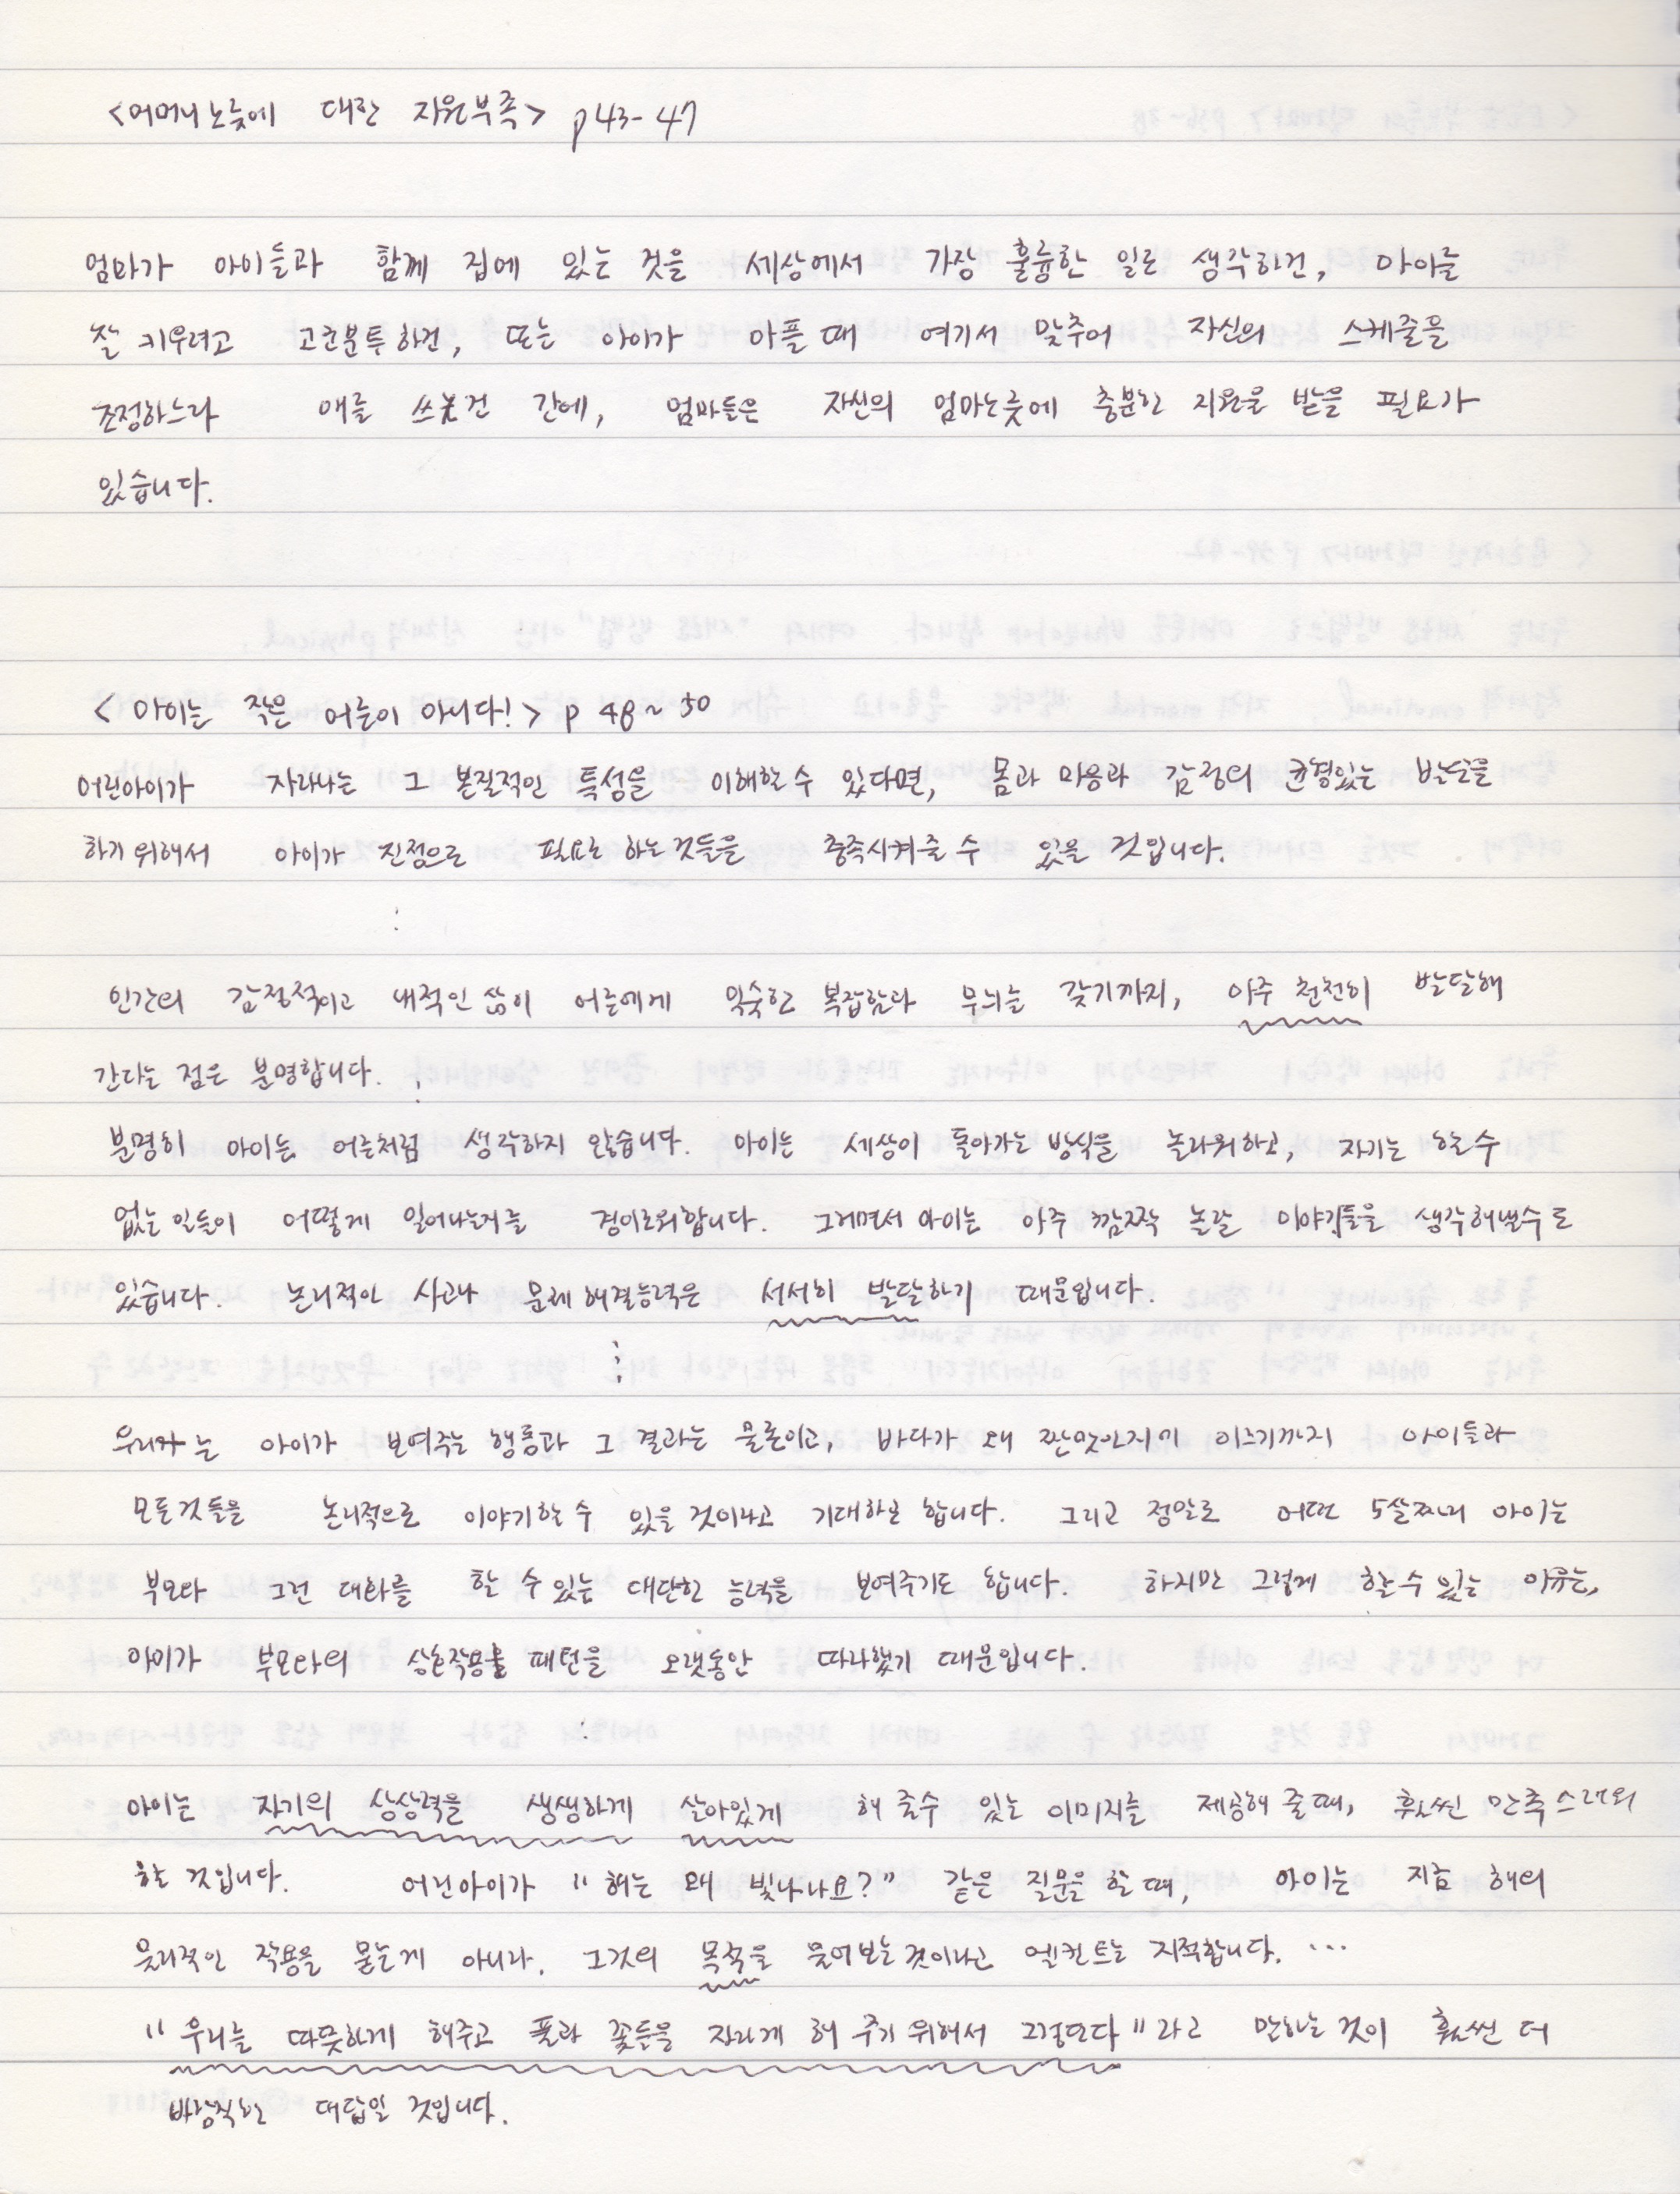 <어머니노릇에 대한 지원부족> p 43-47
엄마가 아이들과 함께 집에 있는 것을 세상에서 가장 훌륭한 일로 생각하건, 아이를
잘 키우려고 고군분투하건, 또는 아이가 아플 때 여기서 맞추어 자신의 스케줄을
조정하느라 애를 쓰건 간에, 엄마들은 자신의 엄마노릇에 충분한 지원을 받을 필요가
있습니다.
<아이는 작은 어른이 아니다!> p 48~50
어린아이가 자라나는 그 본질적인 특성을 이해할 수 있다면, 몸과 마음과 감정의 균형있는 발달을
하기 위해서 아이가 진정으로 필요로 하는 것들을 충족시켜줄 수 있을 것입니다.
⋮
인간의 감정적이고 내적인 삶이 어른에게 익숙한 복잡함과 무늬를 갖기까지, 아주 천천히 발달해
간다는 점은 분명합니다. ⋮
분명히 아이는 어른처럼 생각하지 않습니다. 아이는 세상이 돌아가는 방식을 놀라워하고, 자기는 할 수
없는 일들이 어떻게 일어나는거를 경이로워합니다. 그러면서 아이는 아주 깜짝 놀랄 이야기들을 생각해낼수도
있습니다. 논리적인 사고나 문제해결능력은 서서히 발달하기 때문입니다.
⋮
우리는 아이가 보여주는 행동과 그 결과는 물론이고, 바다가 왜 짠맛인지에 이르기까지 아이들과
모든것들을 논리적으로 이야기할 수 있을 것이라고 기대하곤 합니다. 그리고 정말로 어떤 5살짜리 아이는
부모와 그런 대화를 할 수 있는 대단한 능력을 보여주기도 합니다. 하지만 그렇게 할 수 있는 이유는,
아이가 부모와의 상호작용 패턴을 오랫동안 따라했기 때문입니다.
⋮
아이는 자기의 상상력을 생생하게 살아있게 해 줄수 있는 이미지를 제공해 줄 때, 훨씬 만족스러워
할 것입니다. 어린아이가 "해는 왜 빛나나요?" 같은 질문을 할 때, 아이는 지금 해의
물리적인 작용을 묻는게 아니라, 그것의 목적을 물어보는 것이라고 엘컨트는 지적합니다. …
"우리를 따뜻하게 해주고 풀과 꽃들을 자라게 해 주기 위해서 그렇단다"라고 말하는 것이 훨씬 더
바람직한 대답일 것입니다.